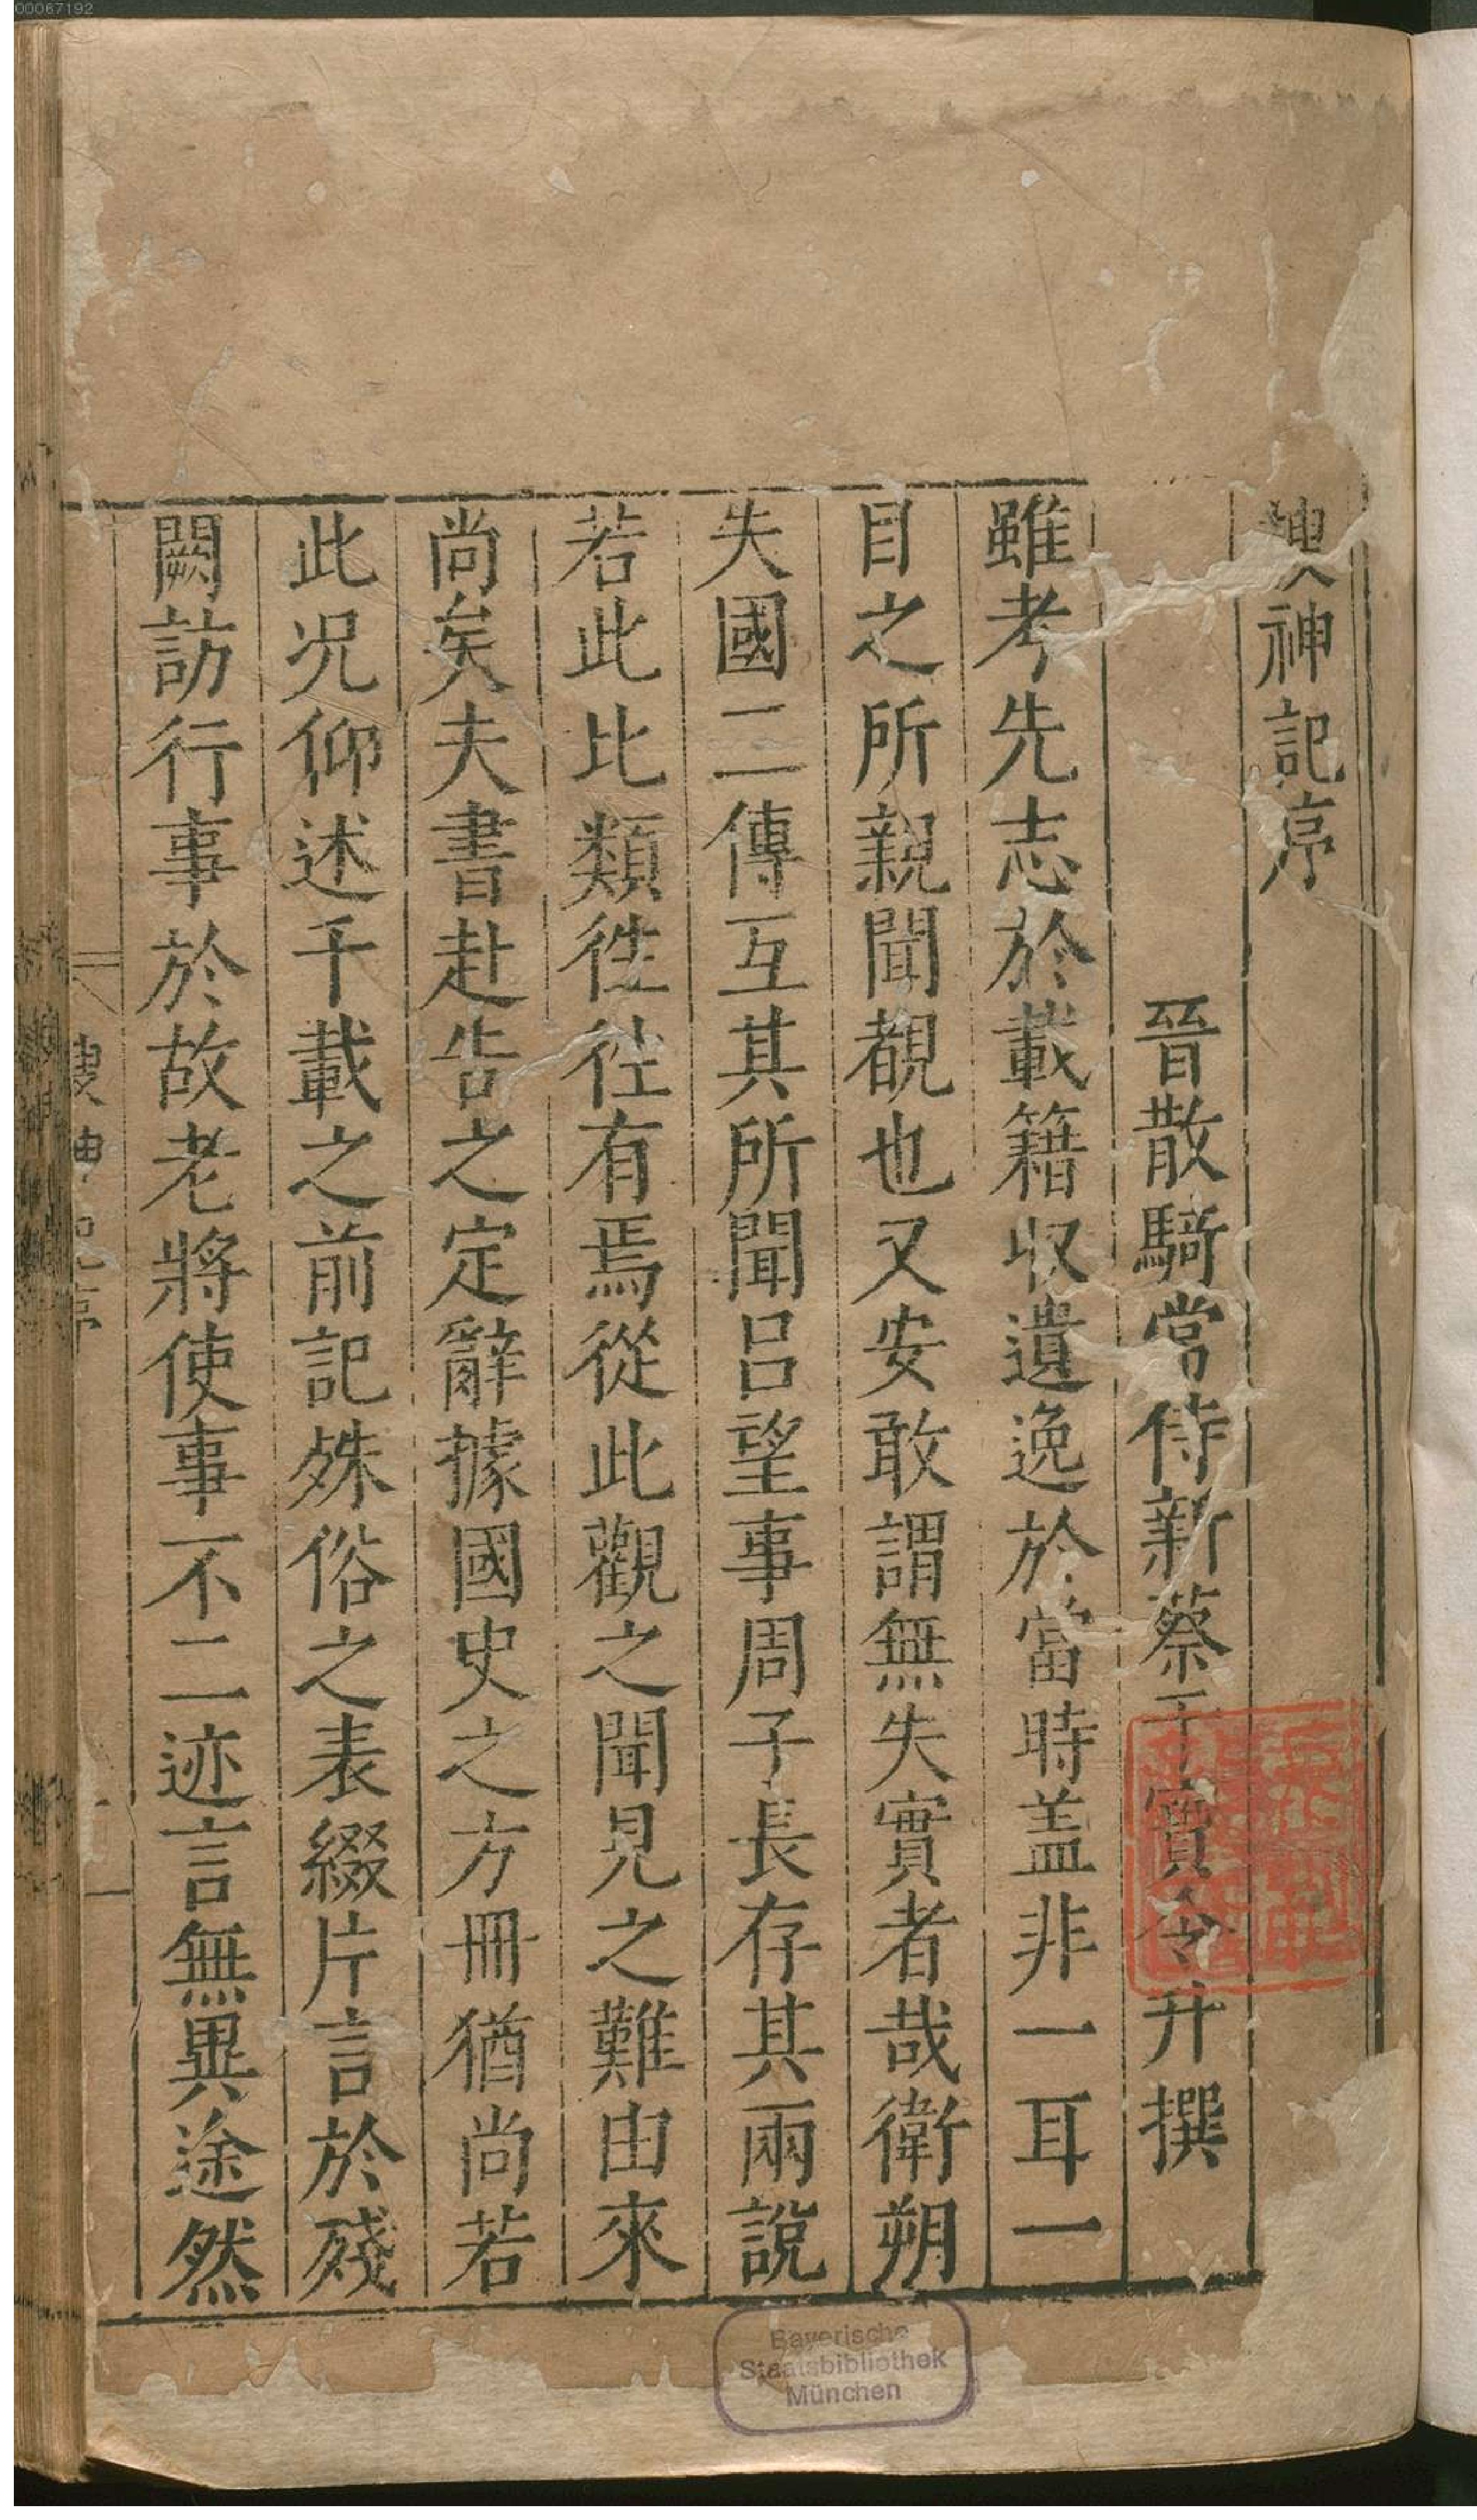 搜神記序
晉散騎常侍新蔡干寶令升撰
雖考先志於載籍収遺逸於當時盖非一耳一
目之所親聞覩也又安敢謂無失實者哉衛朔
失國二傳互其所聞吕望事周子長存其兩說
若此比類徃徃有焉從此觀之聞見之難由來
尚矣夫書赴告之定辭據國史之方冊猶尚若
此况仰述千載之前記殊俗之表綴片言於殘
闕訪行事於故老將使事不二迹言無異途然
搜神記序
一
Bayerische
Staatsbibliothek
München
00067192